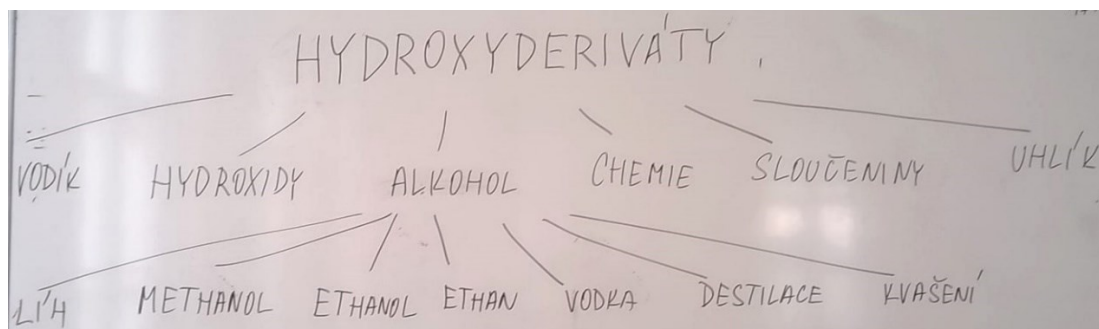 HYDROXYDERIVÁTY
VODÍK HYDROXIDY ALKOHOL CHEMIE SLOUČENINY UHLÍK
LÍH METHANOL ETHANOL ETHAN VODKA DESTILACE KVAŠENÍ